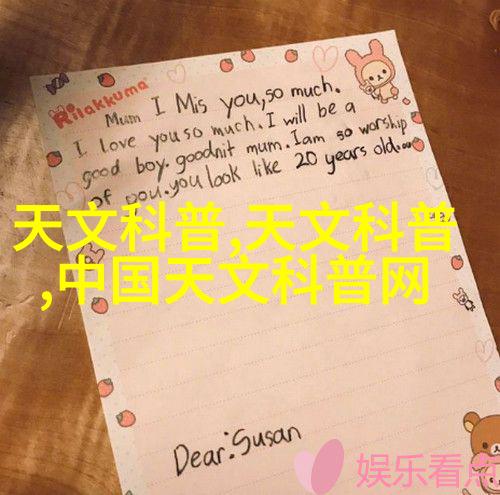 Rilakkuma
Mum I Mis you,so much.
I love you so much.I will be a
good boy.goodnit mum.Iam so worship
of you.you look like 20 years old.
天文科普,天文科普
,中国天文科普网
Dear:Susan
娱乐看点